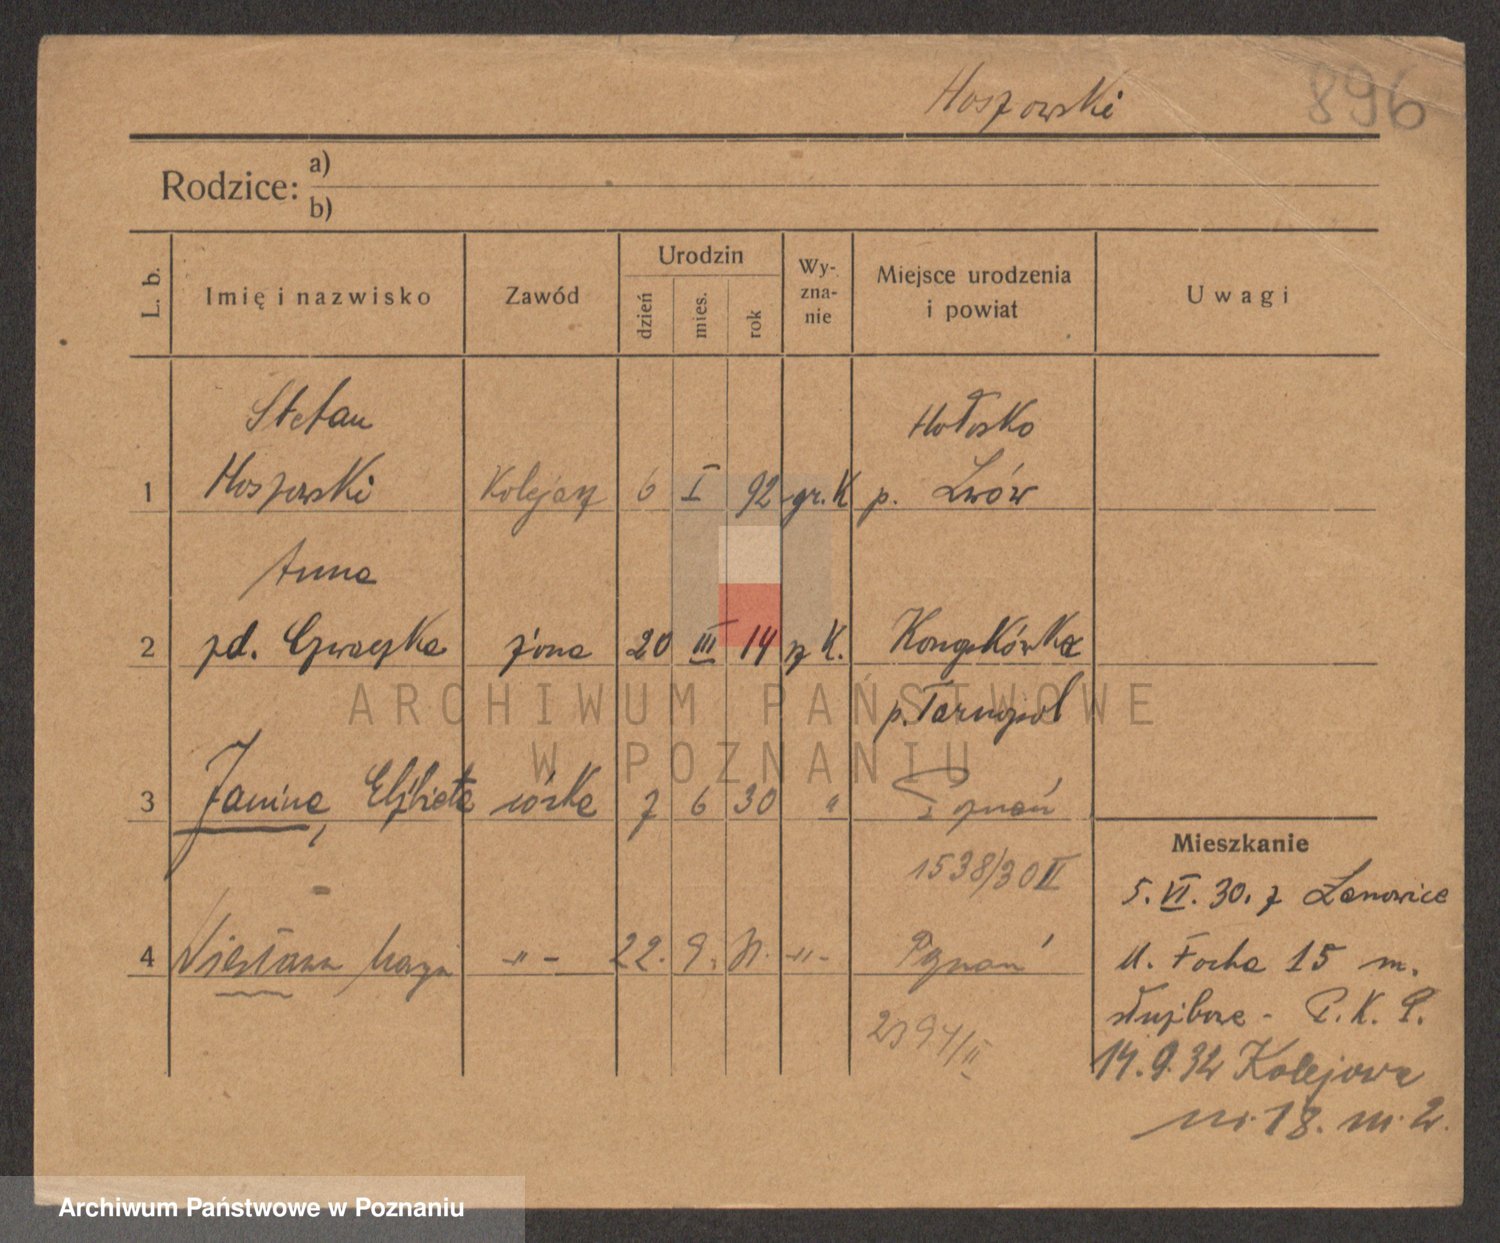 Hoszowski 896
Rodzice: a)
b)
L. b. Imię i nazwisko Zawód Urodzin dzień mies. rok Wy-zna-nie Miejsce urodzenia i powiat Uwagi
Stefan Hołosko
1 Hoszowski Kolejarz 6 I 92 gr. K p. Lwów
Anna
2 zd. żona 20 III 14 rz K.
p. Tarnopol
ARCHIWUM PAŃSTWOWE
W POZNANIU
3 Janina, Elżbieta córka 7 6 30 " Poznań
Mieszkanie
1538/30 II
5. VI. 30. z Łanowice
4 Wiesława -"- 22. 9. -"- Poznań
Ul. Focha 15 m.
służbowe - P. K. P.
14. 9. 32 Kolejowa
nr. 18. m. 2.
Archiwum Państwowe w Poznaniu